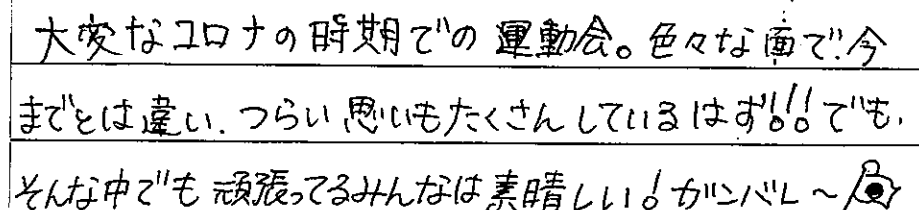 大変なコロナの時期での運動会。色々な面で今
までとは違い、つらい思いもたくさんしているはず!!! でも、
そんな中でも頑張ってるみんなは素晴しい! ガンバレ～